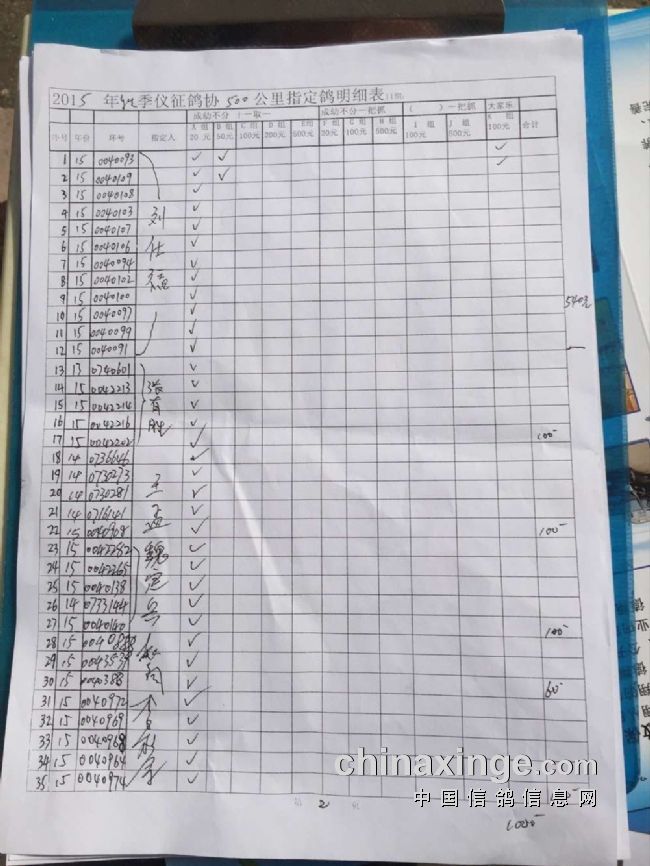 2015 年 季仪征鸽协 500 公里指定鸽明细表
成动不分 十一取一 成动不分一把抓 ( )一把抓 大家乐
序号 年份 环号 指定人 A 组 20 元 B 组 50 元 C 组 100元 D 组 200元 E组 500元 F 组 20 元 G 组 100元 H 组 500元 I 组 100元 J 组 500元 K 组 100元 合计
1 15 0040093 ✓ ✓ ✓
2 15 0040109 ✓ ✓ ✓
3 15 0040108 ✓
4 15 0040103 刘 ✓
5 15 0040107 ✓
6 15 0040106 仕 ✓
7 15 0040094 ✓
8 15 0040102 德 ✓
9 15 0040100 ✓ 540元
10 15 0040097 ✓
11 15 0040099 ✓
12 15 0040091 ✓
13 13 0740601 ✓
14 15 0042213 张 ✓
15 15 0042214 有 ✓
16 15 0042216 胜 ✓
17 15 0042202 ✓ 100
18 14 0736646 ✓
19 14 0730273 ✓
20 14 0730281 王 ✓
21 14 0716141 ✓
22 15 0040908 ✓ 100
23 15 0042282 魏 ✓
24 15 0042265 ✓
25 15 0040138 宦 ✓
26 14 0733144 兵 ✓
27 15 0040140 ✓ 100
28 15 ✓
29 15 ✓
30 15 0040388 ✓ 60
31 15 0040972 ✓
32 15 0040969 ✓
33 15 0040968 ✓
34 15 0040964 ✓
35 15 0040974 ✓
2
1000
chinaxinge.com
中国信鸽信息网